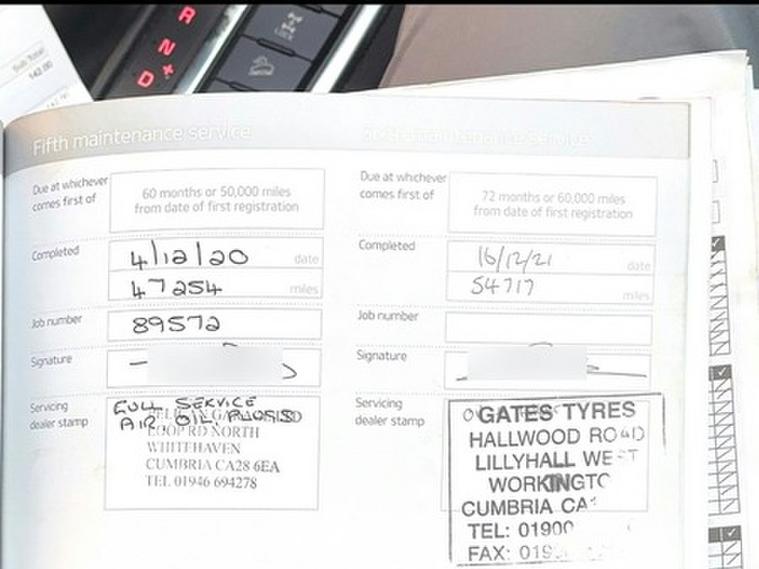 R
N
D
LOCK
Sub Total
142.00
Fifth maintenance service
Due at whichever comes first of
60 months or 50,000 miles
from date of first registration
Completed
4/12/20 date
47254 miles
Job number
89572
Signature
Servicing
dealer stamp
FULL SERVICE
AIR, OIL,
LOOP RD NORTH
WHITEHAVEN
CUMBRIA CA28 6EA
TEL 01946 694278
maintenance service
Due at whichever
comes first of
72 months or 60,000 miles
from date of first registration
Completed
16/12/21 date
54717 miles
Job number
Signature
Servicing
dealer stamp
GATES TYRES
HALLWOOD ROAD
LILLYHALL WEST
CUMBRIA
TEL: 01900
FAX: